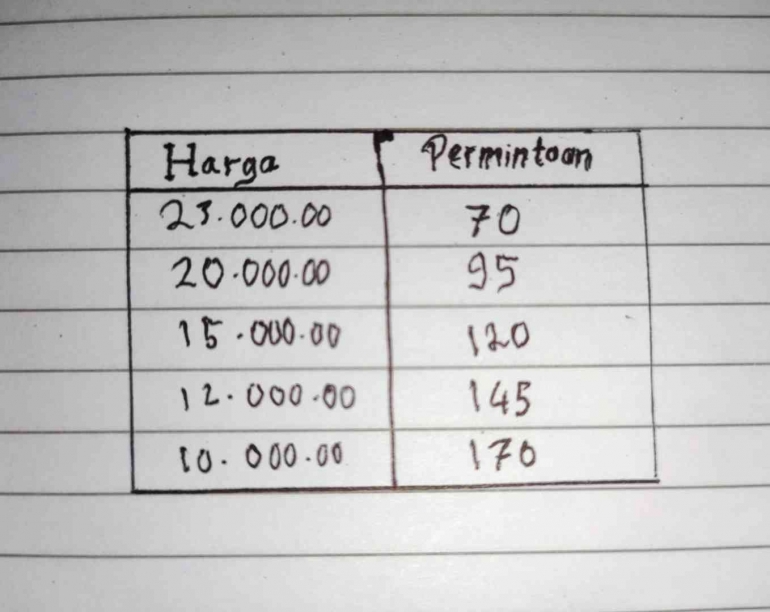 Harga Permintaan
23.000.00 70
20.000.00 95
15.000.00 120
12.000.00 145
10.000.00 170